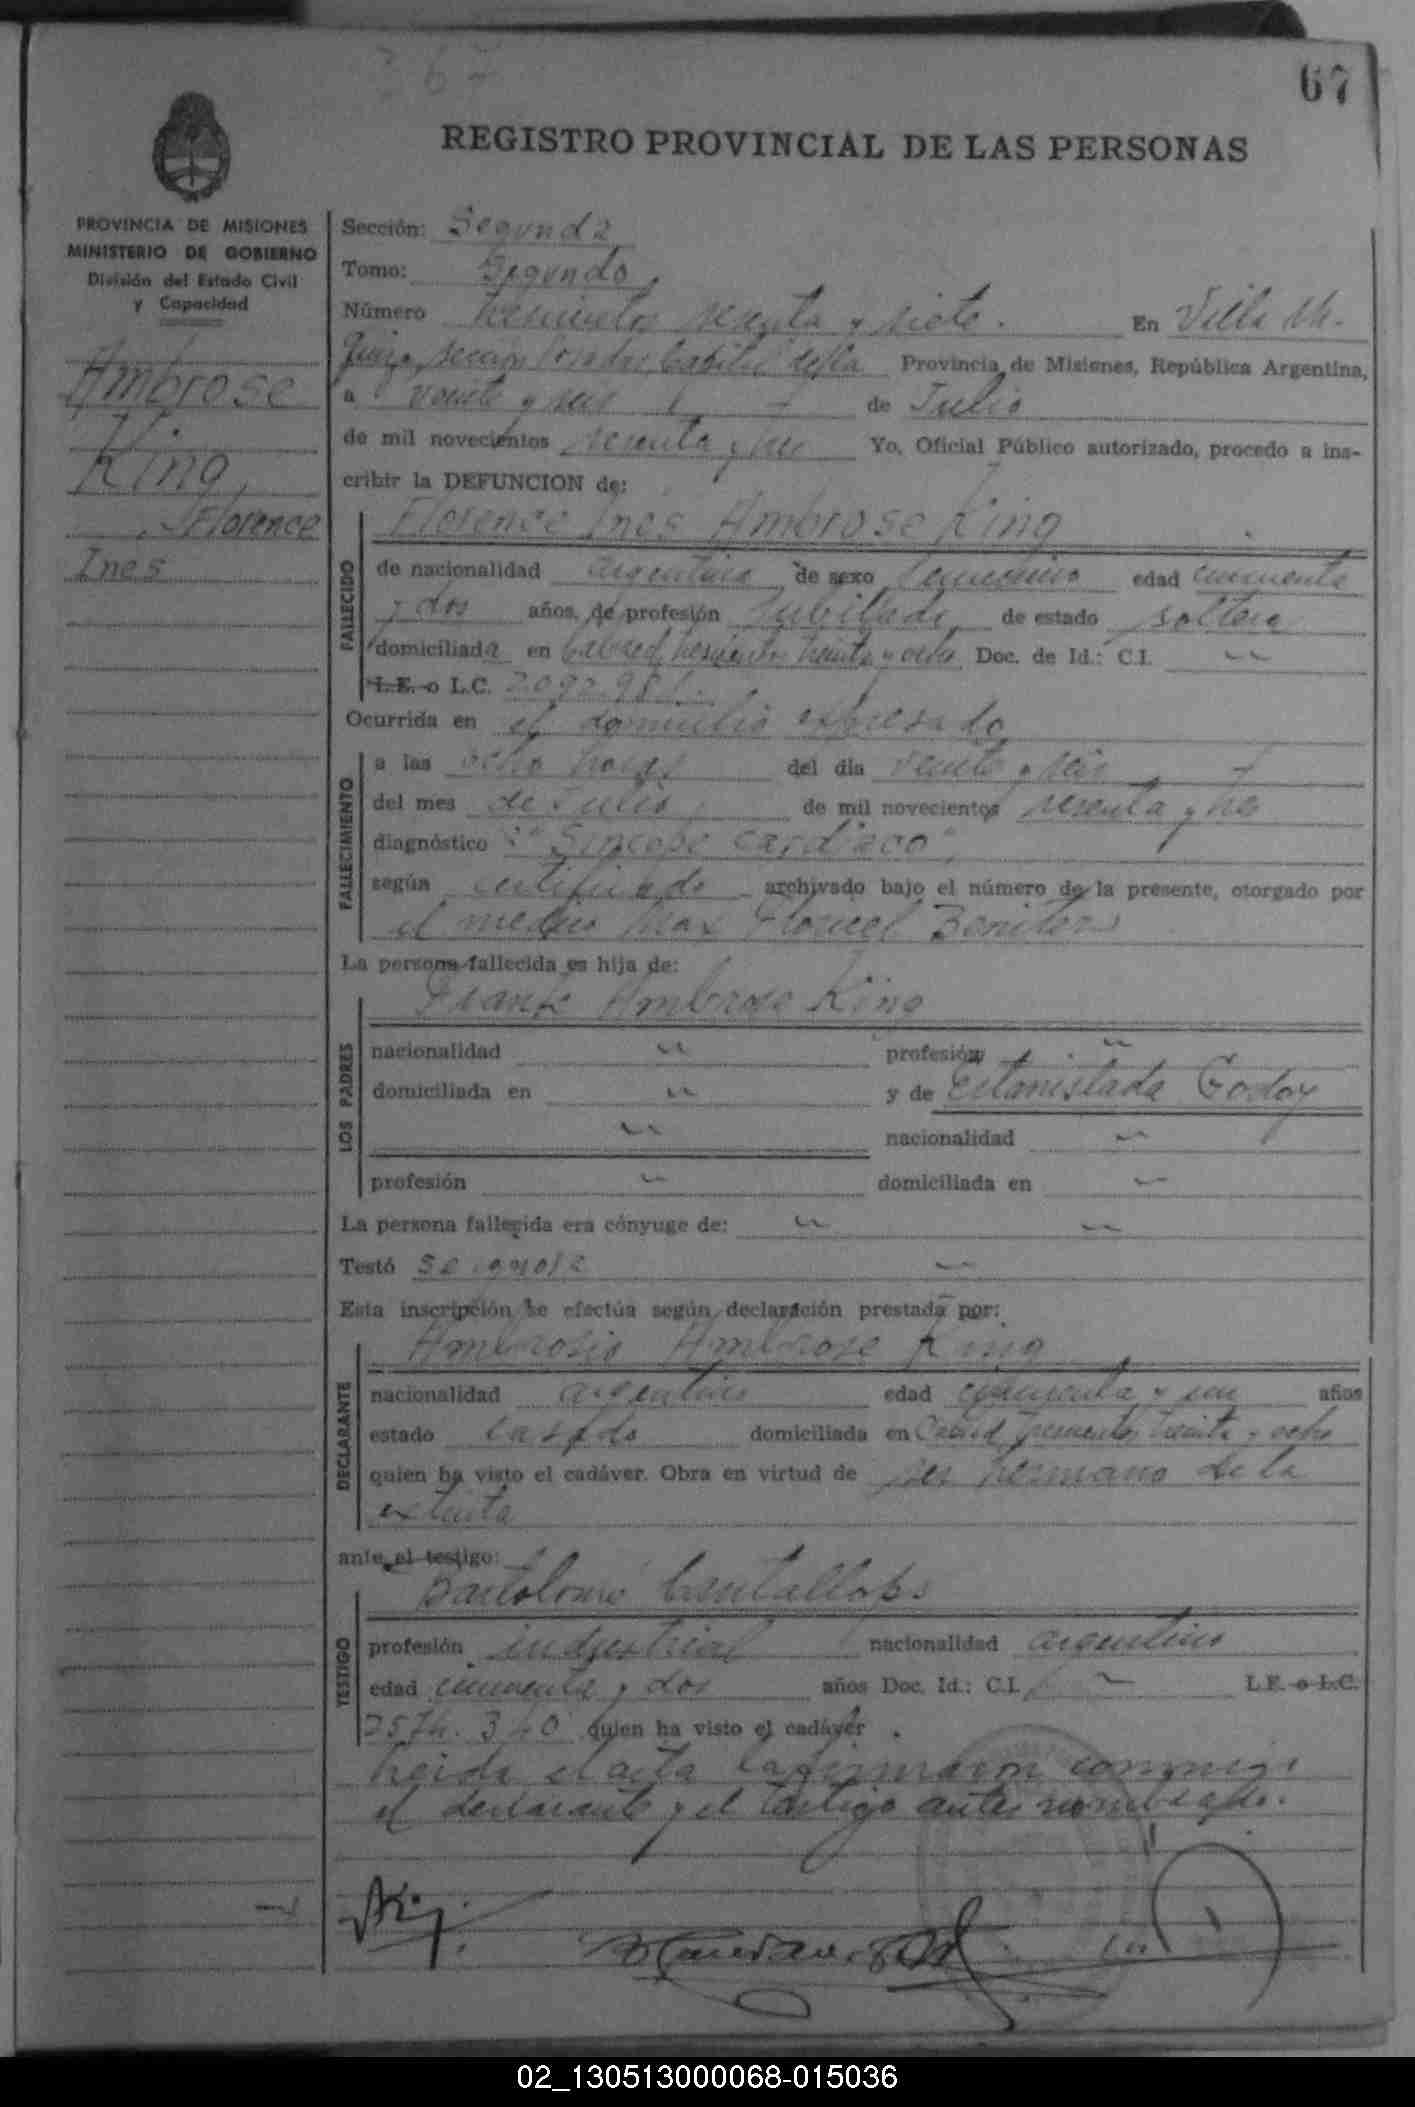 367
67
REGISTRO PROVINCIAL DE LAS PERSONAS
PROVINCIA DE MISIONES
MINISTERIO DE GOBIERNO
División del Estado Civil
y Capacidad
Ambrose
King,
Florence
Ines
Sección: Segunda
Tomo: Segundo
Número trescientos sesenta y siete. En Villa
sección Posadas Capital de la Provincia de Misiones, República Argentina,
a veinte y seis de Julio
de mil novecientos sesenta y tres Yo, Oficial Público autorizado, procedo a ins-
cribir la DEFUNCION de:
Florence Ines Ambrose King
FALLECIDO
de nacionalidad argentina de sexo femenino edad cincuenta
y dos años, de profesión jubilada de estado soltera
domiciliada en trescientos treinta y ocho Doc. de Id.: C.I. --
L.E. o L.C. 2.092.981.
Ocurrida en el domicilio expresado
FALLECIMIENTO
a las ocho horas del día veinte y seis
del mes de Julio de mil novecientos sesenta y tres
diagnóstico: "Sincope cardiaco",
según certificado archivado bajo el número de la presente, otorgado por
el medico Max Benitez
La persona fallecida es hija de:
Frank Ambrose King
LOS PADRES
nacionalidad -- profesión --
domiciliada en -- y de Estanislada Godoy
-- nacionalidad --
profesión -- domiciliada en --
La persona fallecida era cónyuge de: -- --
Testó se ignora --
Esta inscripción se efectúa según declaración prestada por:
Ambrosio Ambrose King
DECLARANTE
nacionalidad argentino edad cincuenta y un años
estado casado domiciliada en trescientos treinta y ocho
quien ha visto el cadáver. Obra en virtud de ser hermano de la
extinta
ante el testigo:
Bartolomé Cantallops
TESTIGO
profesión industrial nacionalidad argentino
edad cincuenta y dos años Doc. Id.: C.I. -- L.E. o L.C.
2574.340 quien ha visto el cadáver.
Leida el acta la firmaron conmigo
el declarante y el testigo antes nombrado.
02_130513000068-015036